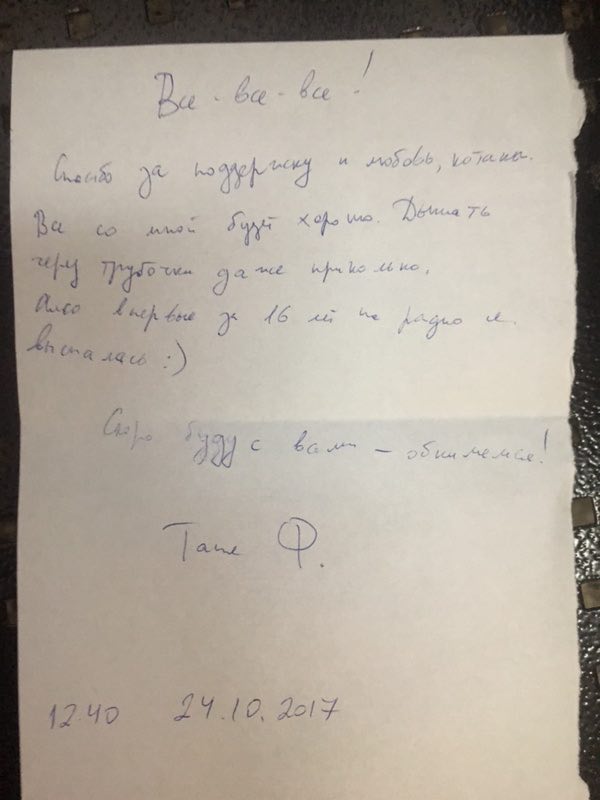 Все-все-все!
Спасибо за поддержку и любовь, котаны.
Все со мной будет хорошо. Дышать
через трубочки даже прикольно.
впервые за 16 лет на радио я
выспалась :)
Скоро буду с вами – обнимемся!
Таня Ф.
12.40 24.10.2017